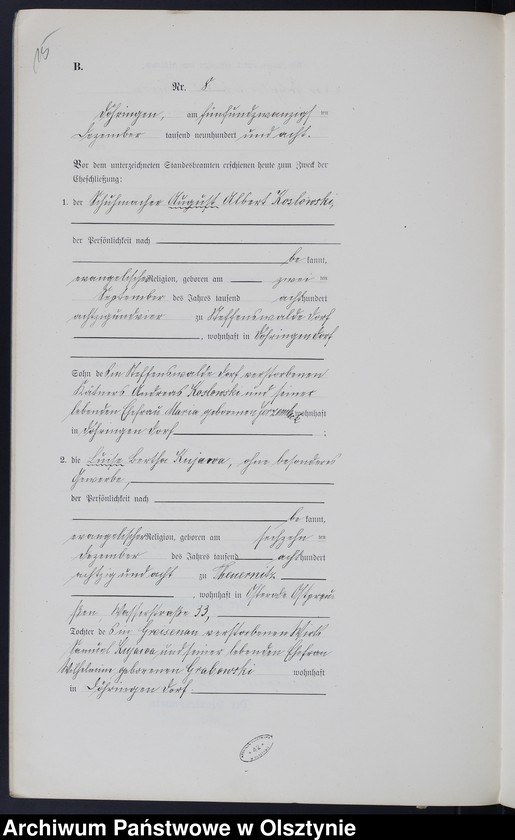 B.
Nr. 8
Döhringen, am fünfundzwanzigsten
Dezember tausend neunhundert und acht.
Vor dem unterzeichneten Standesbeamten erschienen heute zum Zweck der
Eheschließung:
1. der Schuhmacher August Albert Koslowski,
der Persönlichkeit nach
be kannt,
evangelischer Religion, geboren am zwei ten
September des Jahres tausend achthundert
achtzigundvier zu Steffenswalde Dorf
, wohnhaft in Döhringen Dorf
Sohn des in Steffenswalde Dorf verstorbenen
Kätners Andreas Koslowski und seiner
lebenden Ehefrau Maria geborenen wohnhaft
in Döhringen Dorf ;
2. die Luise Bertha Kujawa, ohne besonderes
Gewerbe,
der Persönlichkeit nach
be kannt,
evangelischer Religion, geboren am sechzehn ten
Dezember des Jahres tausend achthundert
achtzig und acht zu Theuernitz
, wohnhaft in Osterode Ostpreu-
ßen, Wasserstraße 33,
Tochter des in verstorbenen Wirts
Samuel Kujawa und seiner lebenden Ehefrau
Wilhelmine geborenen Grabowski wohnhaft
in Döhringen Dorf
Archiwum Państwowe w Olsztynie